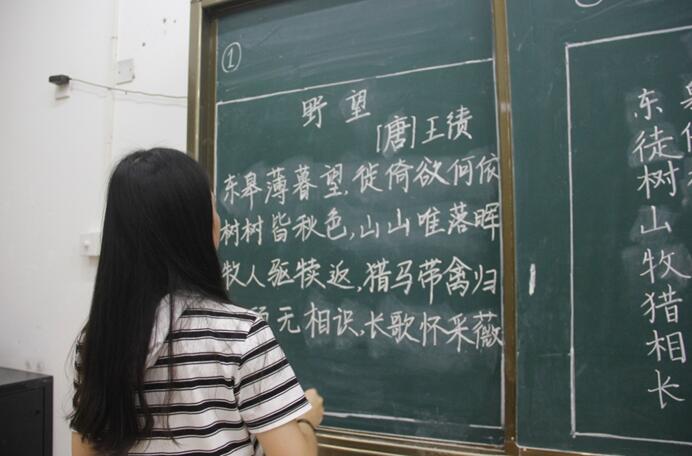 ①
野望
[唐]王绩
东皋薄暮望,徙倚欲何依
树树皆秋色,山山唯落晖
牧人驱犊返,猎马带禽归
无相识,长歌怀采薇
东徒树山牧猎相长